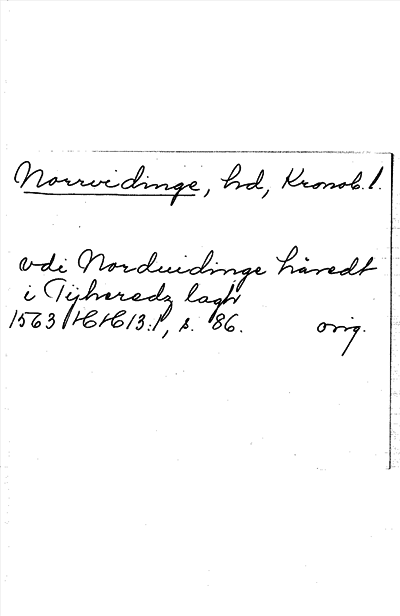 Norrvidinge, hd, Kronob. l.
vdi Norduidinge häredt
i Tijheredz lagh
1563 HH 13:1, s. 86. orig.